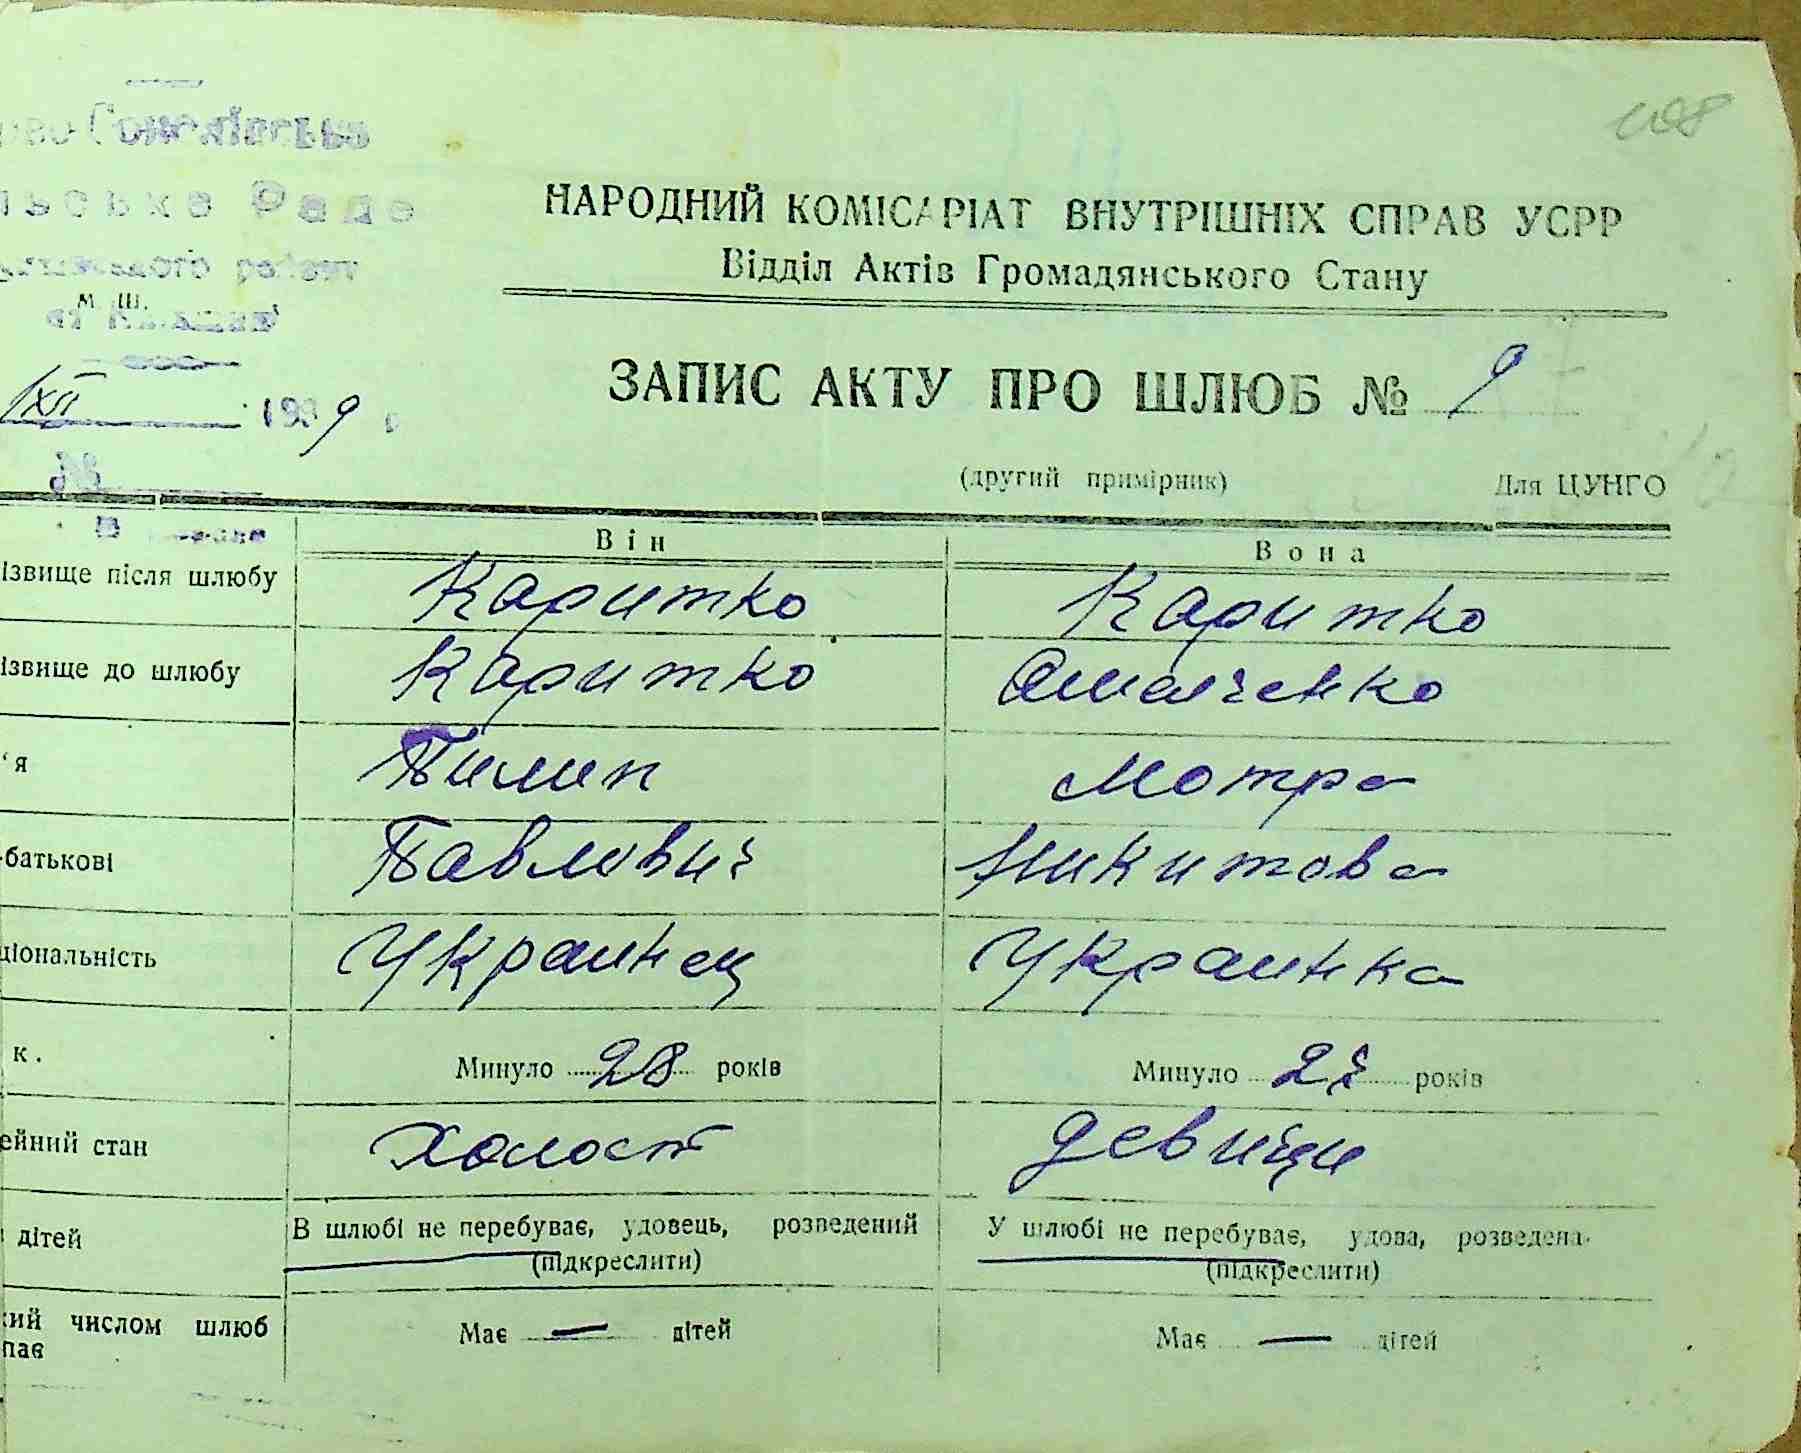 108
НАРОДНИЙ КОМІСАРІАТ ВНУТРІШНІХ СПРАВ УСРР
Відділ Актів Громадянського Стану
м. Ш.
ЗАПИС АКТУ ПРО ШЛЮБ № 9
XII 1939 р.
№
(другий примірник) Для ЦУНГО
Він Вона
ізвище після шлюбу Каритко Каритко
ізвище до шлюбу Каритко Омельченко
'я Пилип Мотра
-батькові Павлович Никитова
ціональність Украинец Украинка
к. Минуло 28 років Минуло років
ейний стан холост девиця
дітей В шлюбі не перебуває, удовець, розведений У шлюбі не перебуває, удова, розведена.
(підкреслити) (підкреслити)
кий числом шлюб Має — дітей Має — дітей
пає